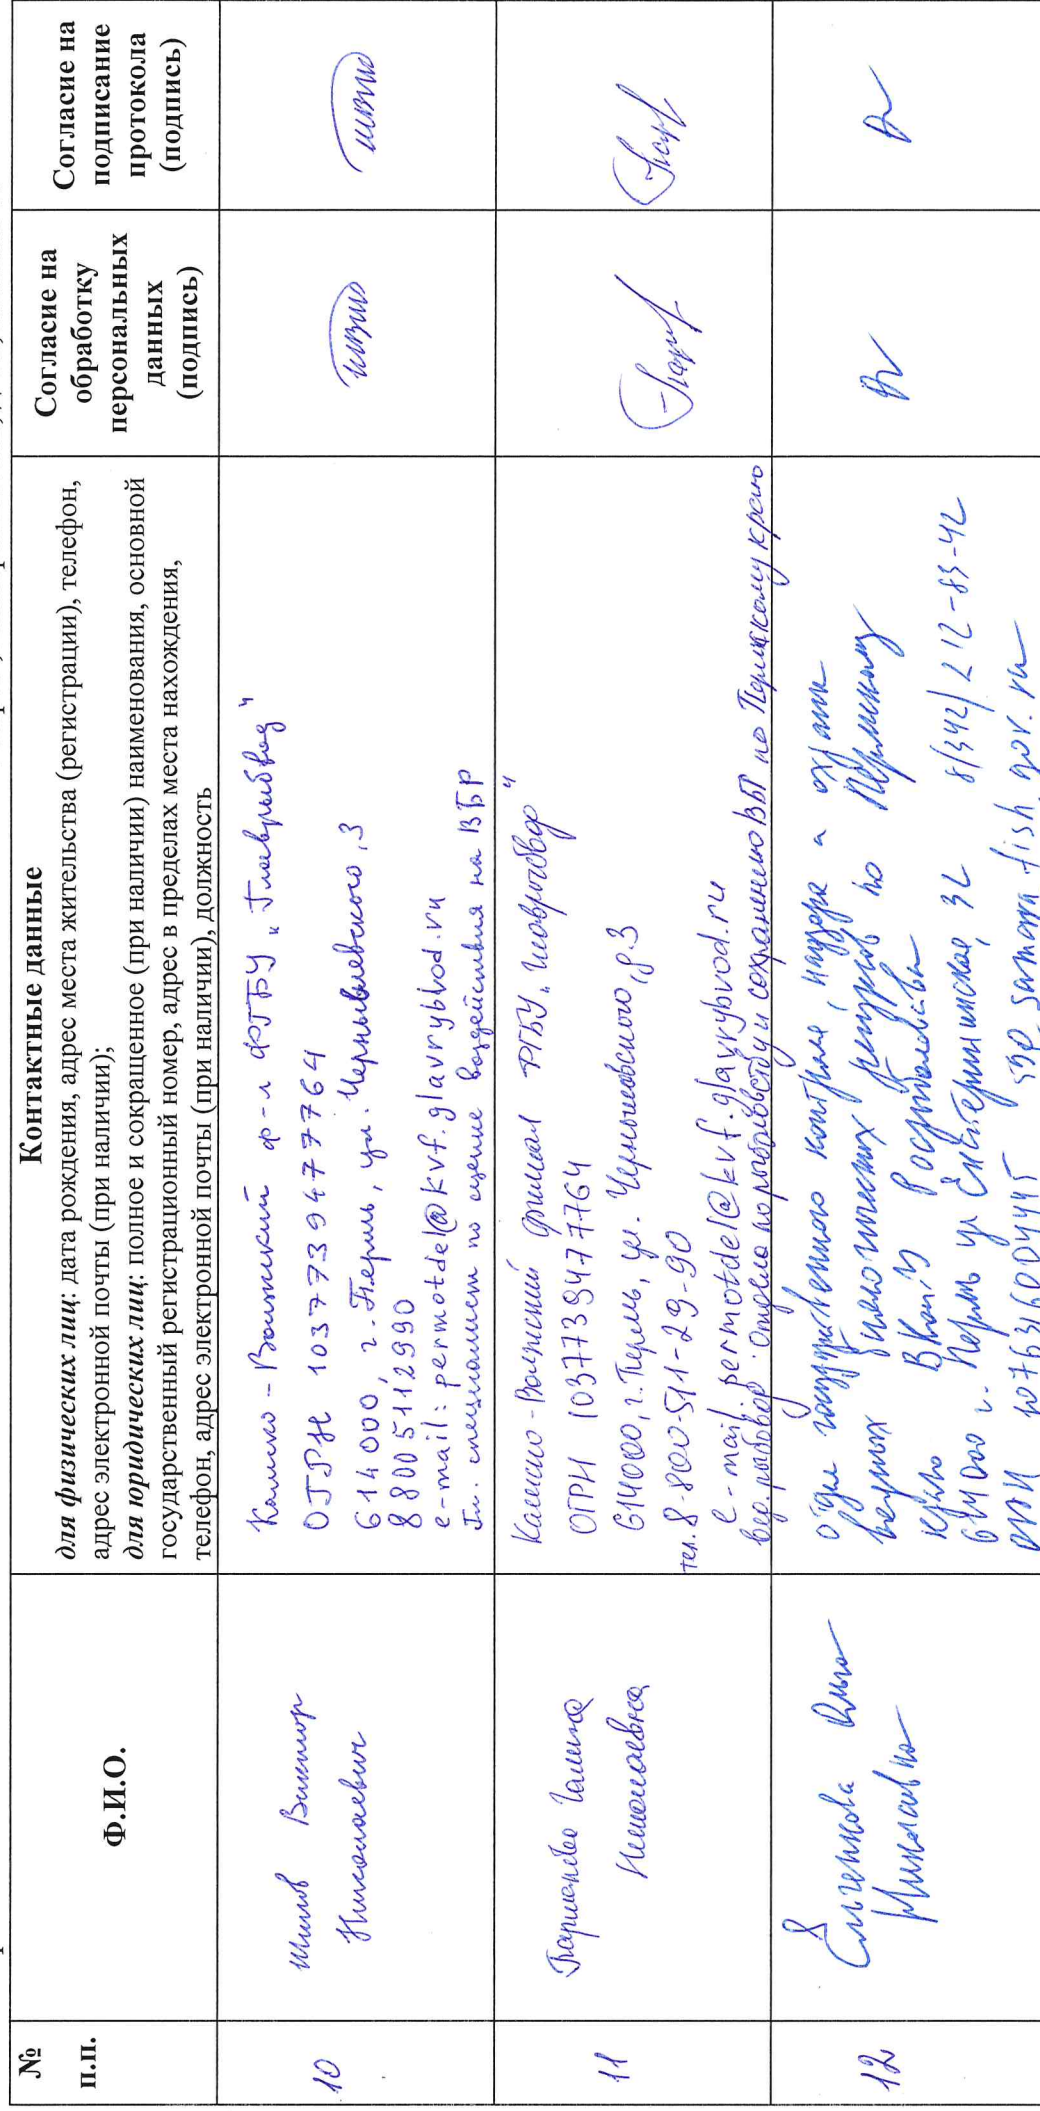 №
п.п.
Ф.И.О.
Контактные данные
для физических лиц: дата рождения, адрес места жительства (регистрации), телефон,
адрес электронной почты (при наличии);
для юридических лиц: полное и сокращенное (при наличии) наименования, основной
государственный регистрационный номер, адрес в пределах места нахождения,
телефон, адрес электронной почты (при наличии), должность
Согласие на
обработку
персональных
данных
(подпись)
Согласие на
подписание
протокола
(подпись)
10
Шилов Виктор
Николаевич
Камско-Волжский ф-л ФГБУ „Главрыбвод"
ОГРН 1037739477764
614000, г. Пермь, ул. Чернышевского, 3
88005112990
e-mail: permotdel@kvf.glavrybvod.ru
Гл. специалист по оценке воздействия на ВБР
11
Галина
Николаевна
Камско-Волжский филиал ФГБУ „Главрыбвод"
ОГРН 1037739477764
614000, г. Пермь, ул. Чернышевского, д.3
тел. 8-800-511-29-90
e-mail: permotdel@kvf.glavrybvod.ru
вед. рыбовод Отдела по рыбоводству и сохранению ВБР по Пермскому краю
12
Николаевна
отдел государственного контроля, надзора и охраны
водных биологических ресурсов по Пермскому
краю Росрыболовства
614000 г. Пермь ул Екатерининская, 32 8(342) 212-83-42